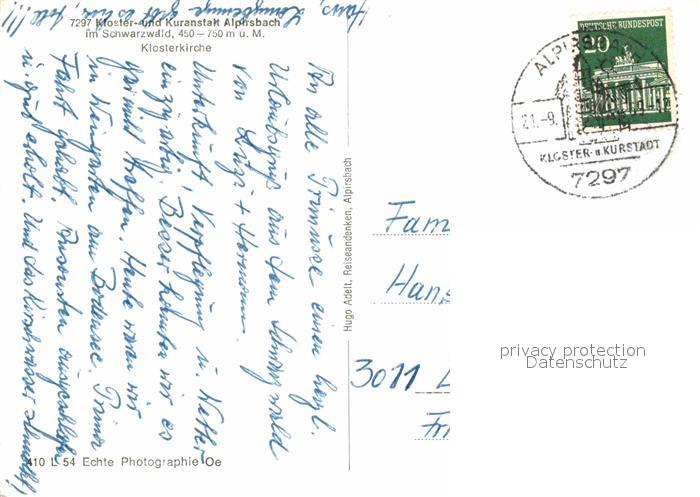 7297 Kloster- und Kuranstalt Alpirsbach
im Schwarzwald, 450–750 m ü. M.
Klosterkirche
An alle Trimüsse einen herzl.
Urlaubsgruß aus dem Schwarzwald
von Luzi + Hermann.
Unterkunft, Verpflegung u. Wetter
einzigartig! Besser konnten wir es
gar nicht treffen. Heute waren wir
in Weingarten am Bodensee. Prima
Fahrt gehabt. Ansonsten
u. gut erholt. Und das Kirschwasser schmeckt!
Hans,
gibt es hier, toll!!!
410 L 54 Echte Photographie Oe
Hugo Adelt, Reiseandenken, Alpirsbach
DEUTSCHE BUNDESPOST
20
ALPIRSB
21.-9.
-12
KLOSTER- u KURSTADT
7297
Fam
Hans
3011 L
privacy protection
Datenschutz